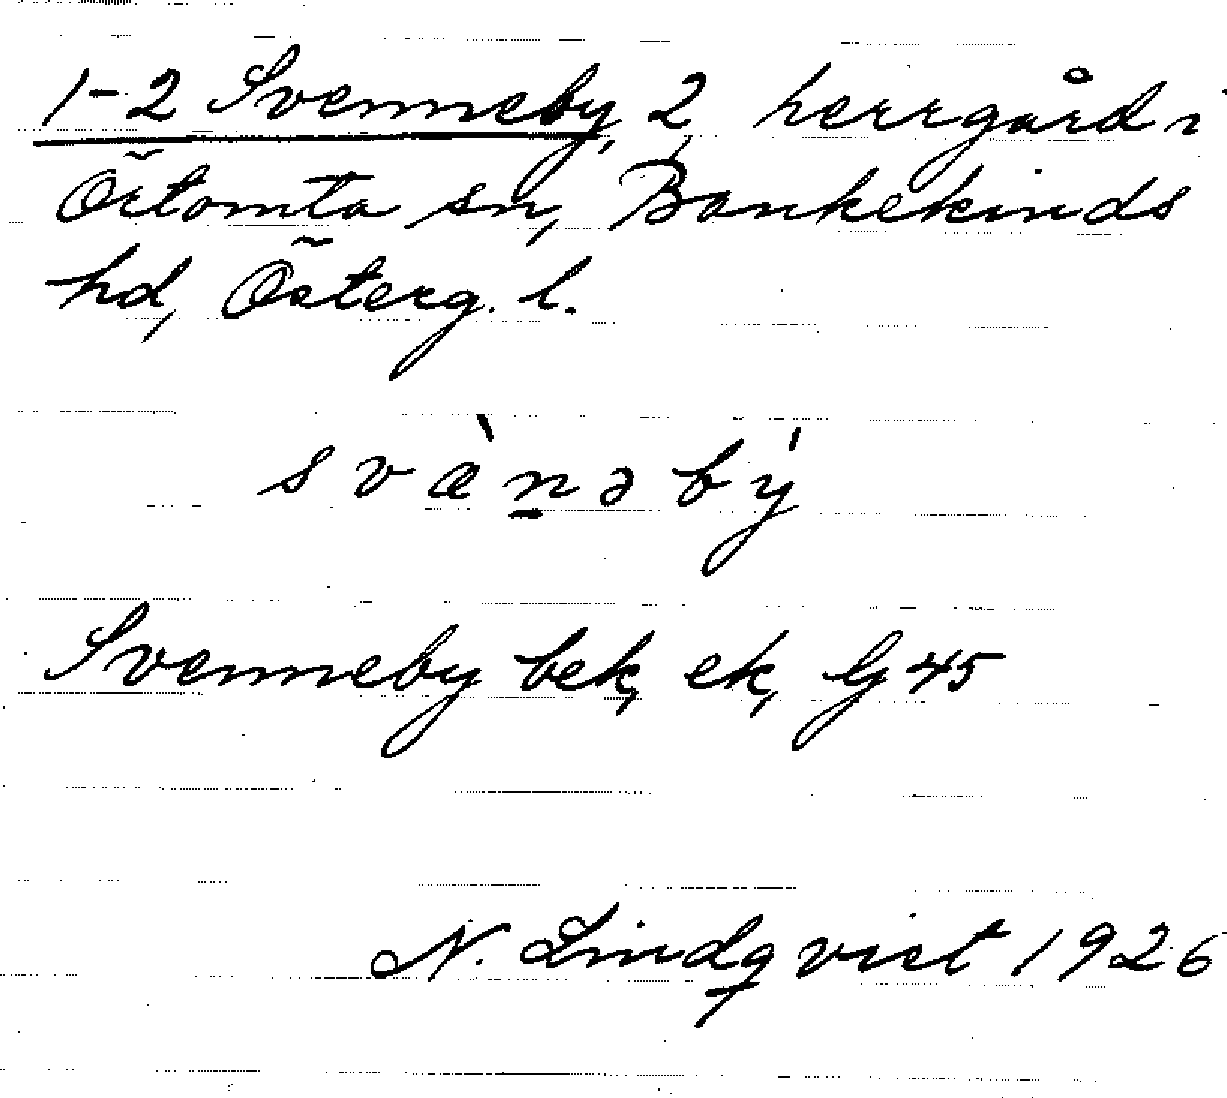 1-2 Svenneby, 2 herrgård i
Örtomta sn, Bankekinds
hd, Österg. l.
svæ̀nəbý
Svenneby bek, ek, Gj 45
N. Lindqvist 1926